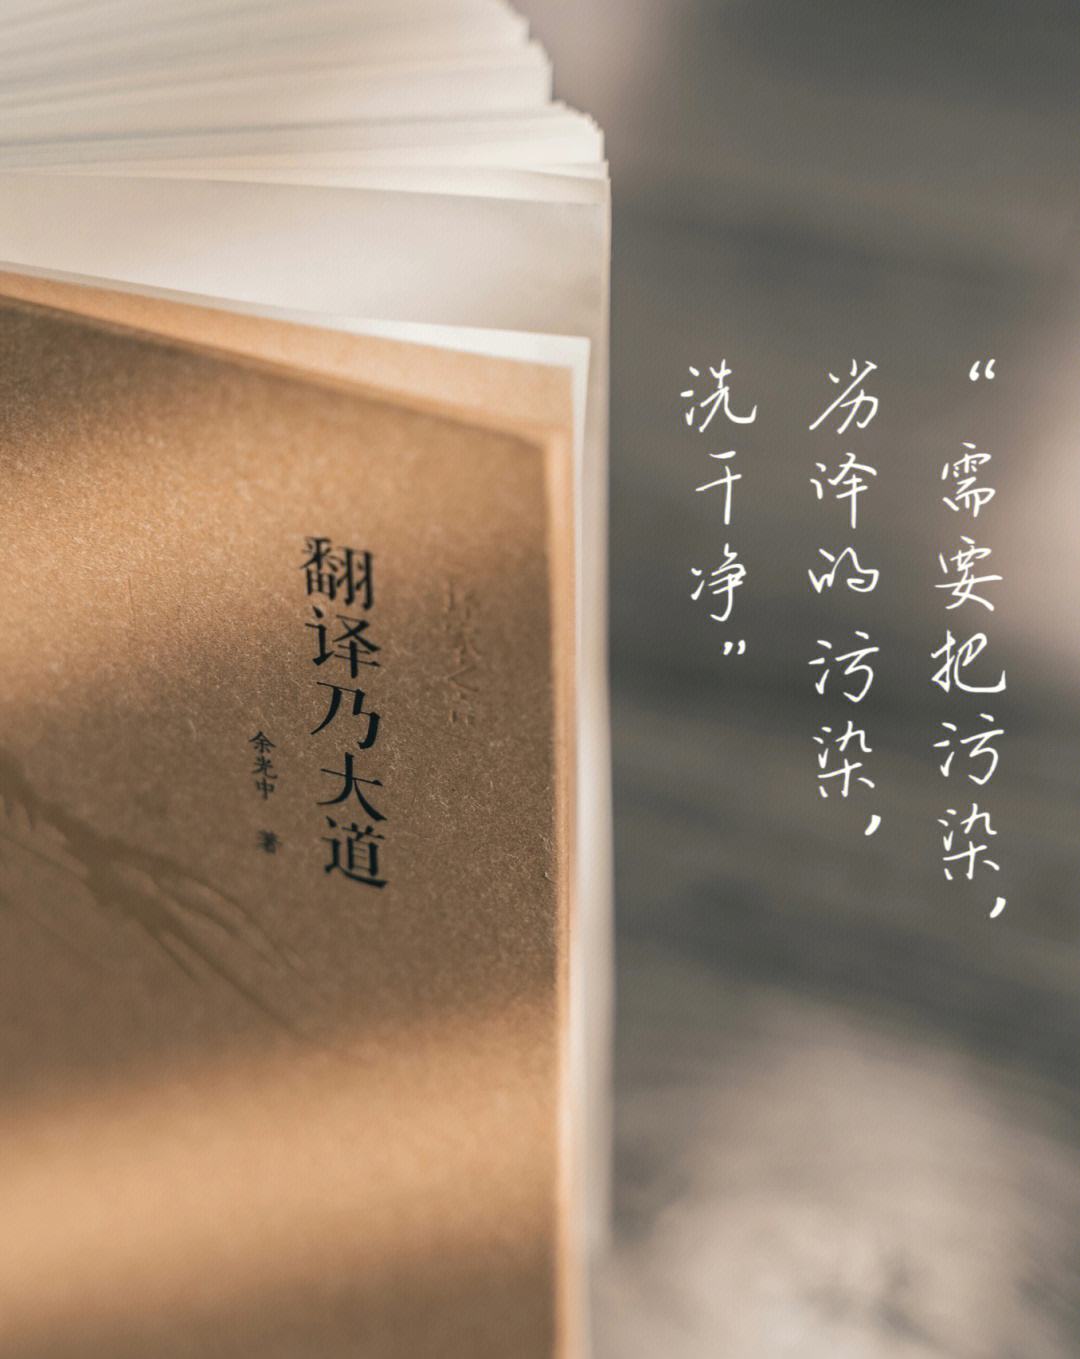 “需要把污染，
劣译的污染，
洗干净”
翻译乃大道
余光中 著